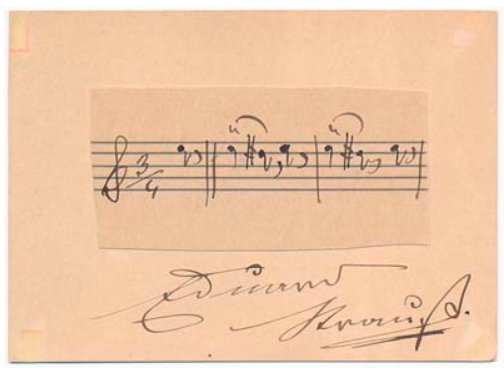 3
4
Eduard
Strauß.